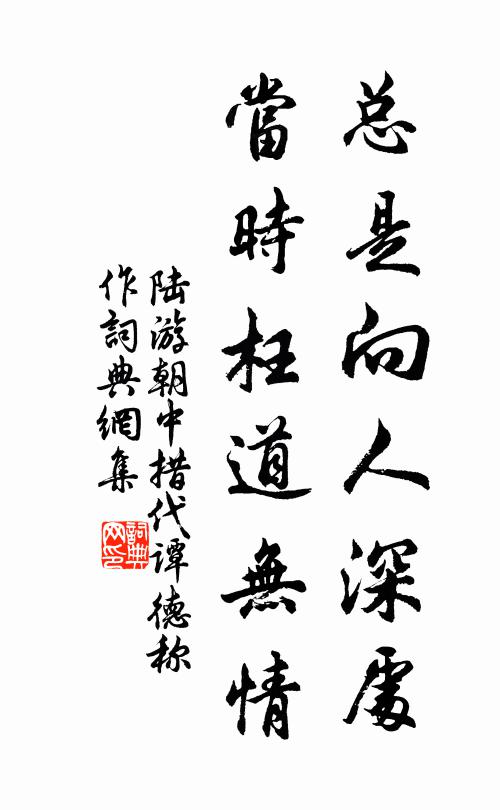 总是向人深處
當時枉道無情
陆游朝中措代谭德称
作詞典網集
詞典网印